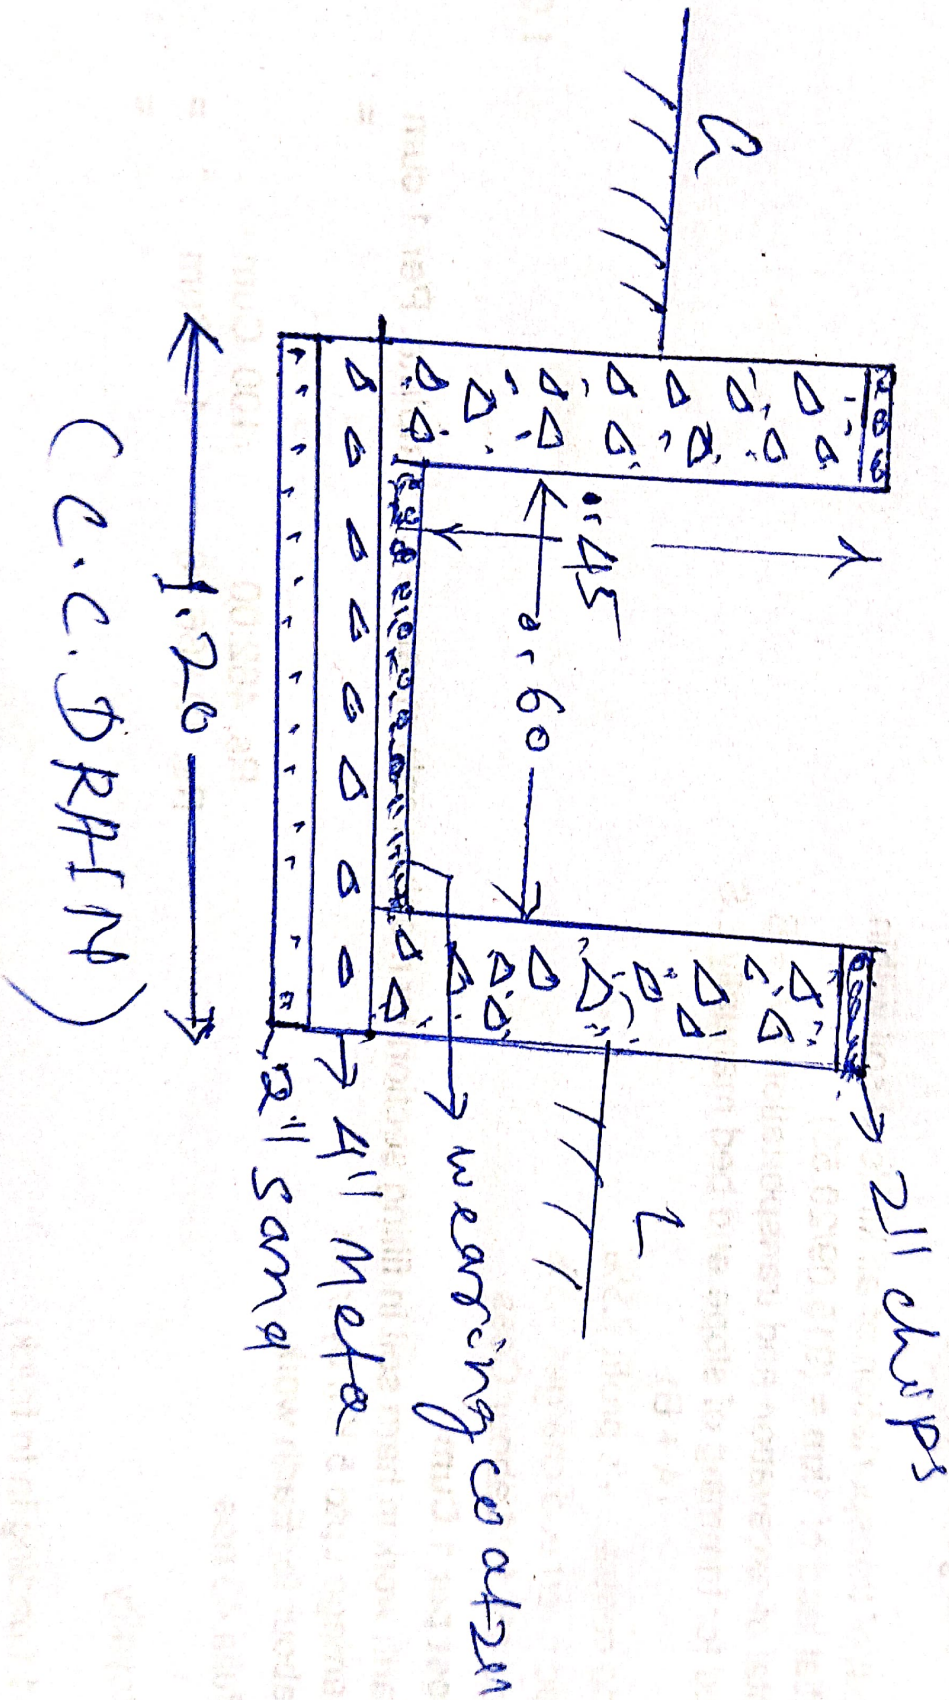 G
L
2" chips
0.45
0.60
wearing coat 2"
4" Meta
2" Sand
1.20
(C.C. DRAIN)